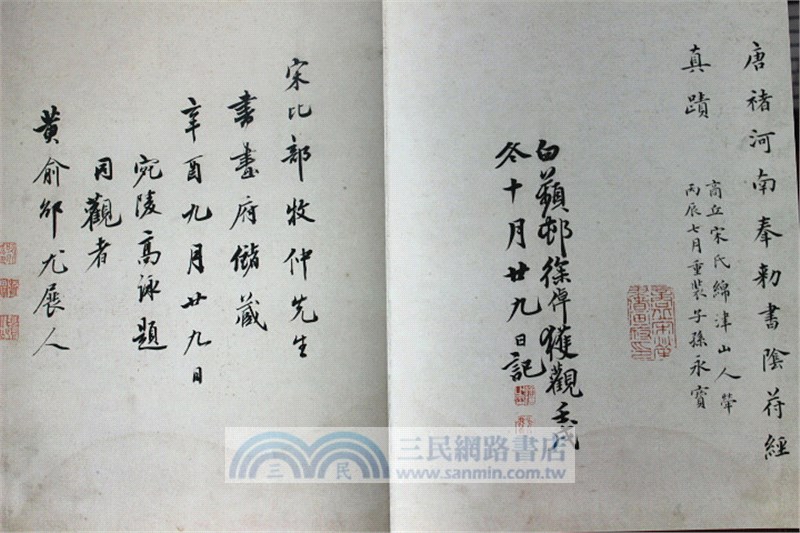 唐褚河南奉勅書陰符經
真蹟
商丘宋氏綿津山人犖
丙辰七月重裝子孫永寶
白蘋邨徐倬獲觀壬戌
冬十月廿九日記
宋比部牧仲先生
書畫府儲藏
辛酉九月廿九日
宛陵高詠題
同觀者
黃俞邰尤展人
三民網路書店
三民
www.sanmin.com.tw